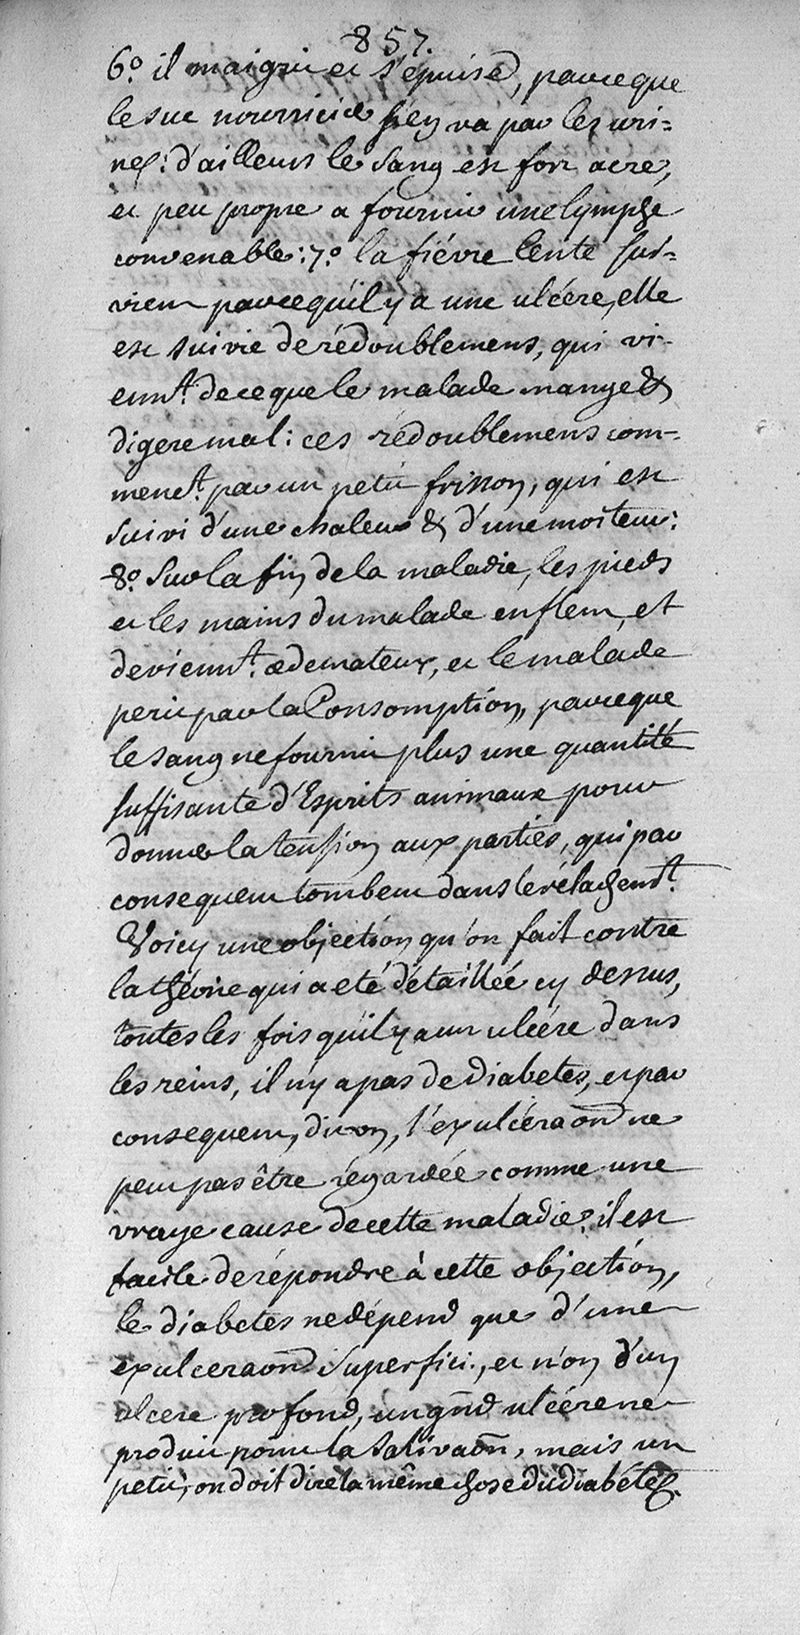 857.
6.° il maigrit et s'epuise, parceque
le suc nourricier s'en va par les uri=
nes: d'ailleurs le sang est fort acre,
et peu propre a fournir une lymphe
convenable: 7.° la fiévre lente sur=
vient parcequ'il y a une ulcére, elle
est suivie de rédoublemens, qui vi-
enn.t de ce que le malade mange &
digere mal: ces rédoublemens com=
menc.t par un petit frisson, qui est
suivi d'une chaleur & d'une moiteur:
8.° sur la fin de la maladie, les pieds
et les mains du malade enflent, et
devienn.t œdemateux, et le malade
perit par la Consomption, parceque
le sang ne fournit plus une quantité
suffisante d'Esprits animaux pour
donner la tension aux parties, qui par
consequent tombent dans le rélachem.t
Voicy une objection qu'on fait contre
la théorie qui a eté détaillée cy dessus,
toutes les fois qu'il y a un ulcére dans
les reins, il n'y a pas de diabetes, et par
consequent, dit-on, l'exulcéraõn ne
peut pas être régardée comme une
vraye cause de cette maladie: il est
facile de répondre à cette objection,
le diabetes ne dépend que d'une
exulceraõn superfici., et non d'un
ulcere profond, un gñd ulcére ne
produit point la salivaõn, mais un
petit, on doit dire la même chose du diabétes.